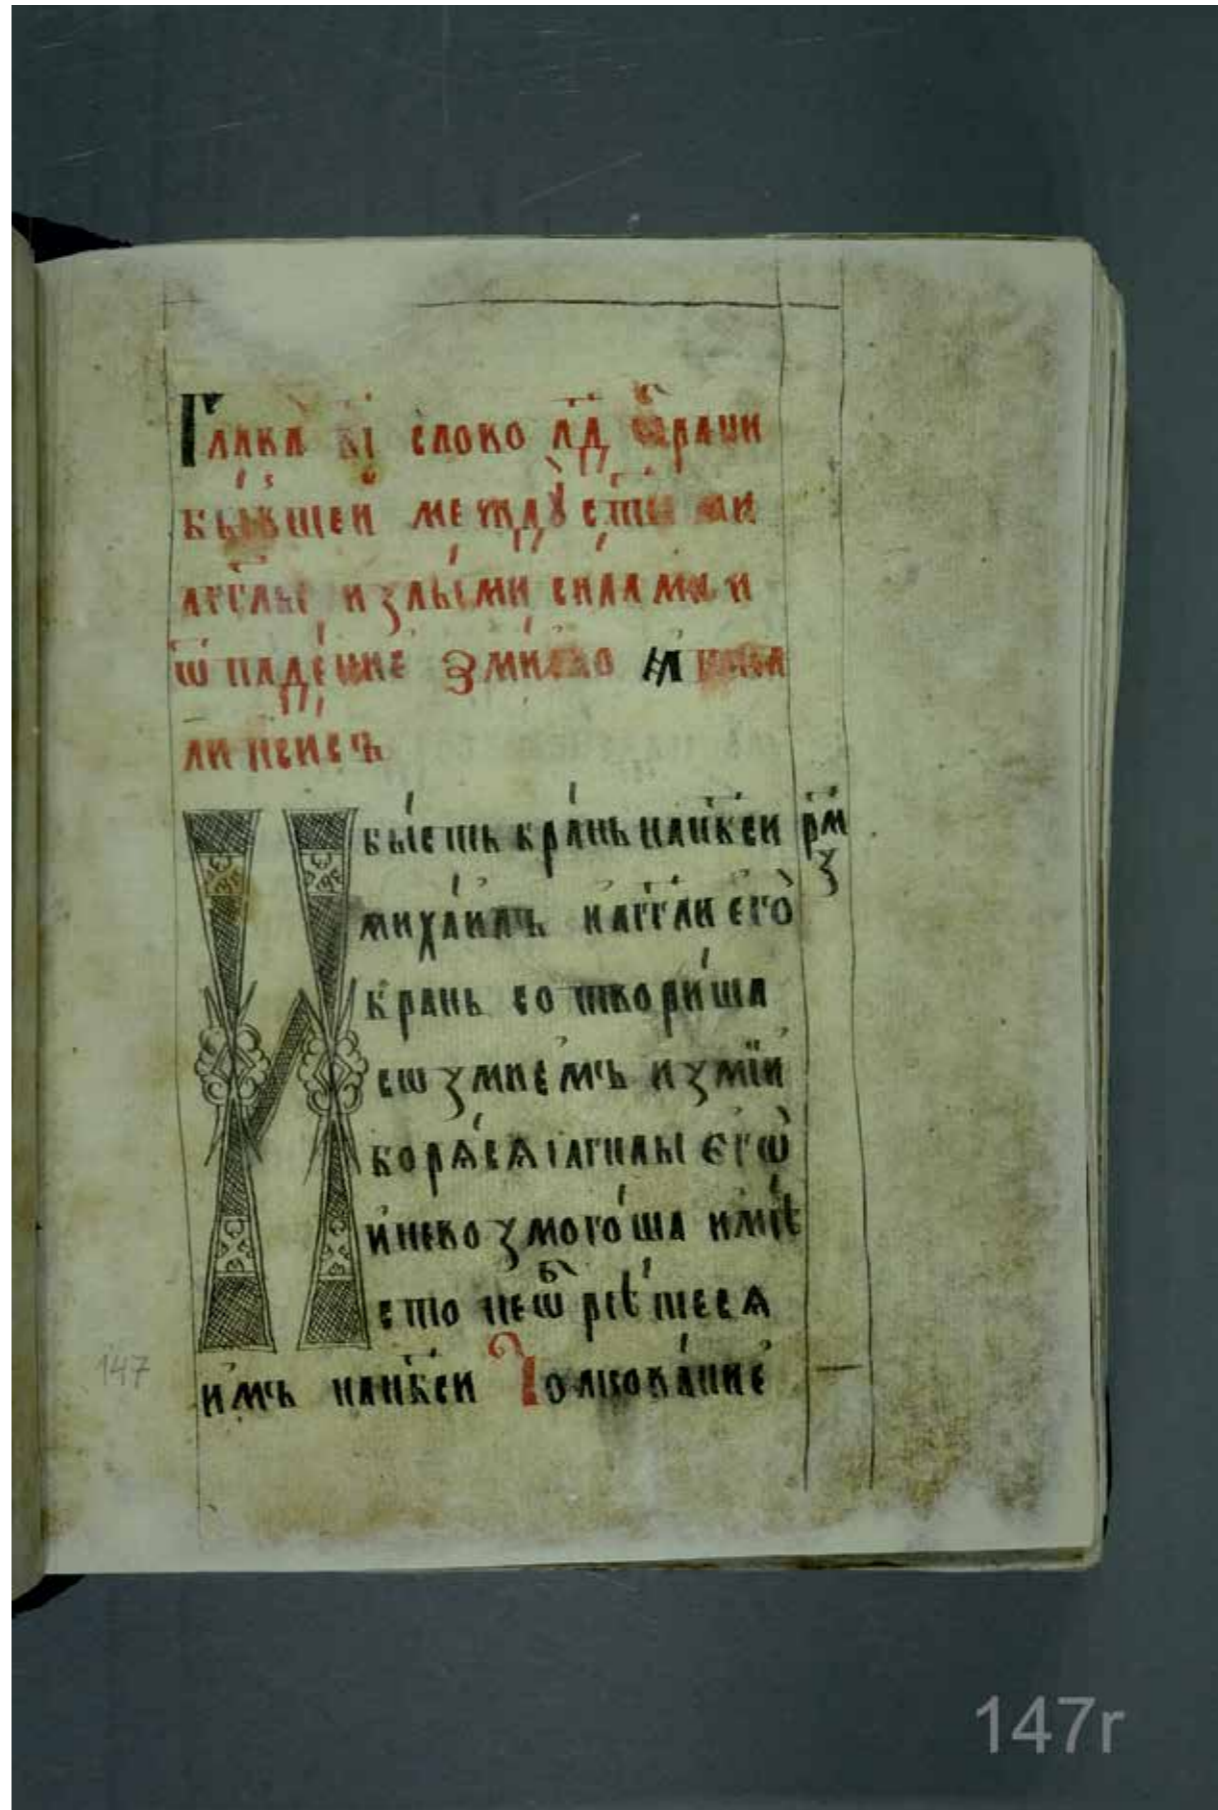 Глава ві слово лд ѡ брани
бывшей между ст҃ыми
аг҃глы и злыми силами и
ѡ падение змиево и кона
ли неиесъ
И бысть брань на нб҃си рм҃з
михаилъ и аг҃гли его
брань сотвориша
сѡ змиемъ и змїй
борѧсѧ і агг҃лы єгѡ
и невозмогоша и мѣ
сто неѡбрѣтесѧ
имъ на нб҃си Толкование
147
147r